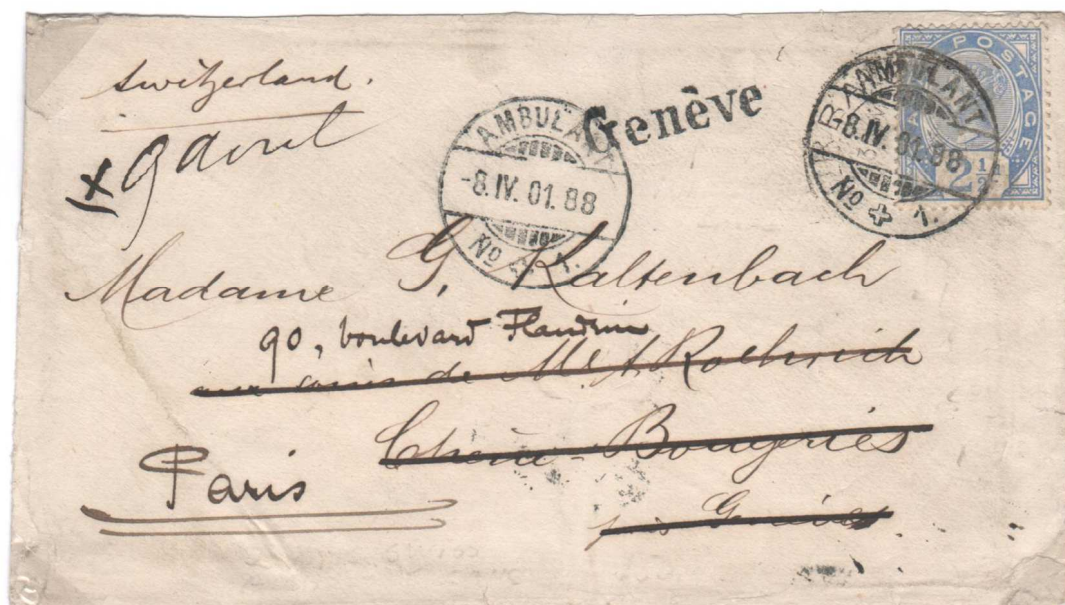 Switzerland.
9 avril
Genève
AMBULANT
-8.IV.01.88
No 1.
AMBULANT
-8.IV.01.88
No 1.
POSTAGE
2½
Madame G. Kaltenbach
90, boulevard Flandrin
aux soins de Mr. A. Roehrich
Chêne-Bougeries
près Genève
Paris